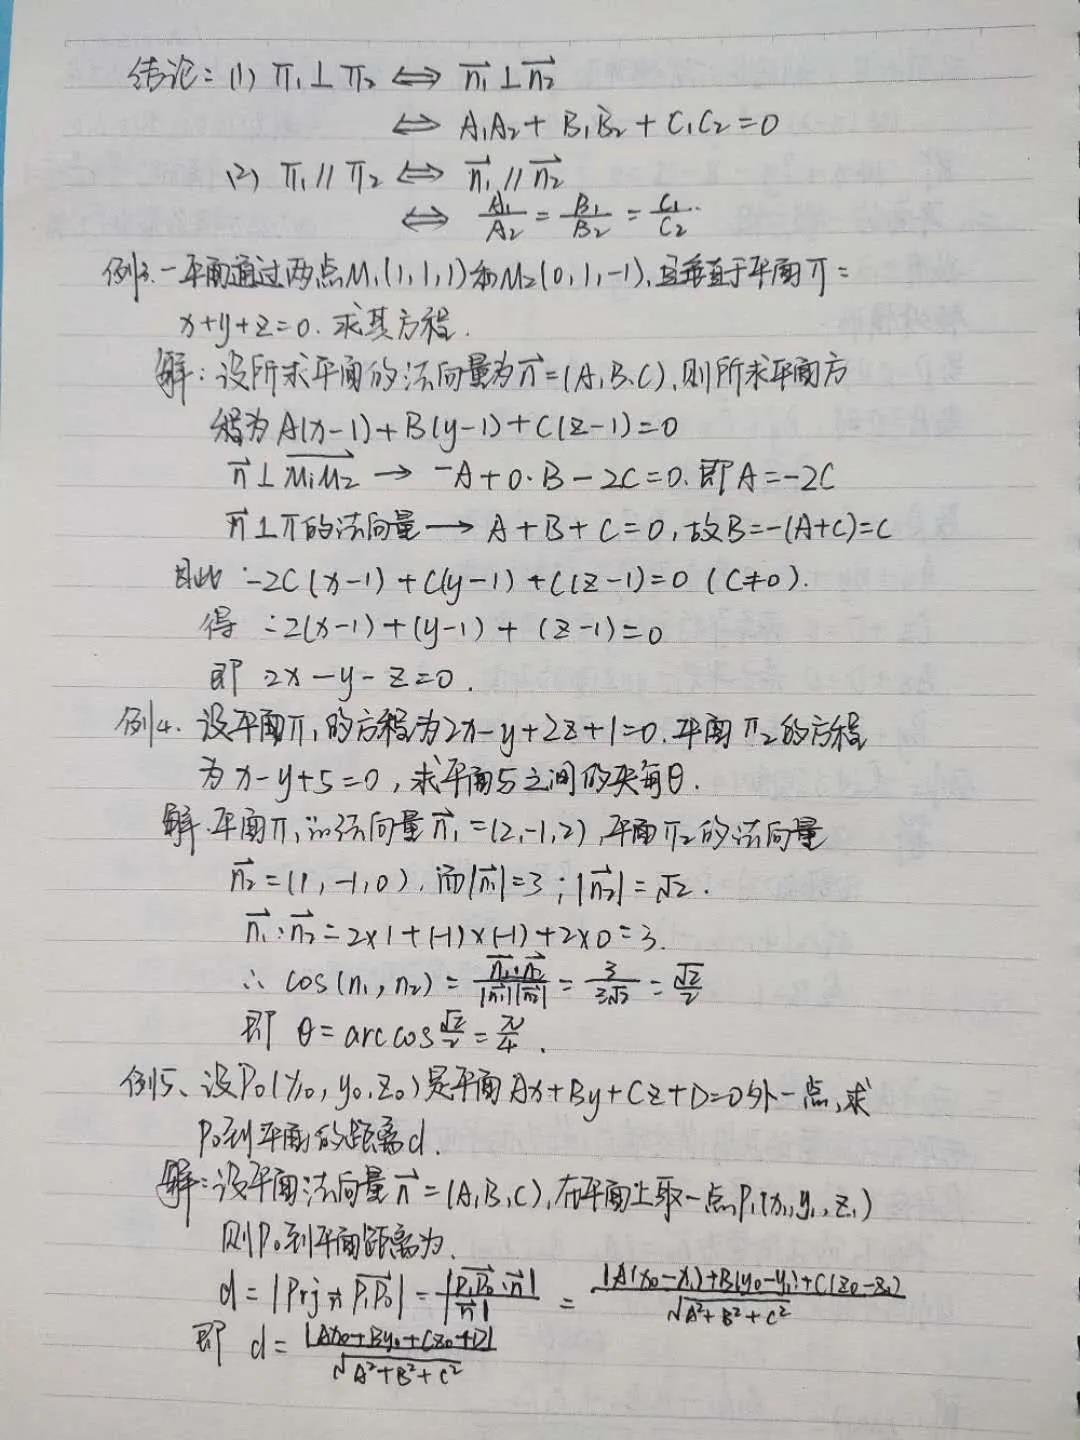 结论：(1) π₁⊥π₂ ⟺ n₁⊥n₂
⟺ A₁A₂+B₁B₂+C₁C₂=0
(2) π₁∥π₂ ⟺ n₁∥n₂
⟺ A₁/A₂ = B₁/B₂ = C₁/C₂.
例3.一平面通过两点M₁(1,1,1)和M₂(0,1,-1),且垂直于平面π=
x+y+z=0.求其方程.
解：设所求平面的法向量为n=(A,B,C),则所求平面方
程为A(x-1)+B(y-1)+C(z-1)=0
n⊥M₁M₂ → -A+0·B-2C=0.即A=-2C
n⊥π的法向量→A+B+C=0,故B=-(A+C)=C
因此：-2C(x-1)+C(y-1)+C(z-1)=0 (C≠0).
得：-2(x-1)+(y-1)+(z-1)=0
即 2x-y-z=0.
例4.设平面π₁的方程为2x-y+2z+1=0.平面π₂的方程
为x-y+5=0,求平面与之间的夹角θ.
解.平面π₁的法向量n₁=(2,-1,2),平面π₂的法向量
n₂=(1,-1,0),而|n₁|=3;|n₂|=√2.
n₁·n₂=2×1+(-1)×(-1)+2×0=3.
∴ cos(n₁,n₂)= n₁·n₂/|n₁||n₂| = 3/3√2 = √2/2
即 θ=arccos√2/2=π/4.
例5、设P₀(x₀,y₀,z₀)是平面Ax+By+Cz+D=0外一点,求
P₀到平面的距离d.
解：设平面法向量n=(A,B,C),在平面上取一点P₁(x₁,y₁,z₁)
则P₀到平面距离为.
d=|Prjn P₁P₀|=|P₁P₀·n|/|n| = |A(x₀-x₁)+B(y₀-y₁)+C(z₀-z₁)/√A²+B²+C²
即 d=|Ax₀+By₀+Cz₀+D|/√A²+B²+C²